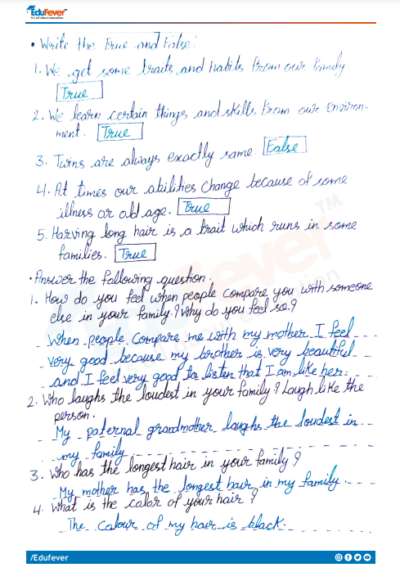 EduFever
• Write the True and False:
1. We get some traits and habits from our family
True
2. We learn certain things and skills from our environ-
ment. True
3. Twins are always exactly same. False
4. At times our abilities change because of some
illness or old age. True
5. Harving long hair is a trait which runs in some
families. True
• Answer the following question.
1. How do you feel when people compare you with someone
else in your family? Why do you feel so?
When people compare me with my mother I feel
very good because my brother is very beautiful
and I feel very good to listen that I am like her.
2. Who laughs the loudest in your family? Laugh like the
person.
My paternal grandmother laughs the loudest in
my family
3. Who has the longest hair in your family?
My mother has the longest hair in my family.
4. What is the color of your hair?
The colour of my hair is black.
/Edufever